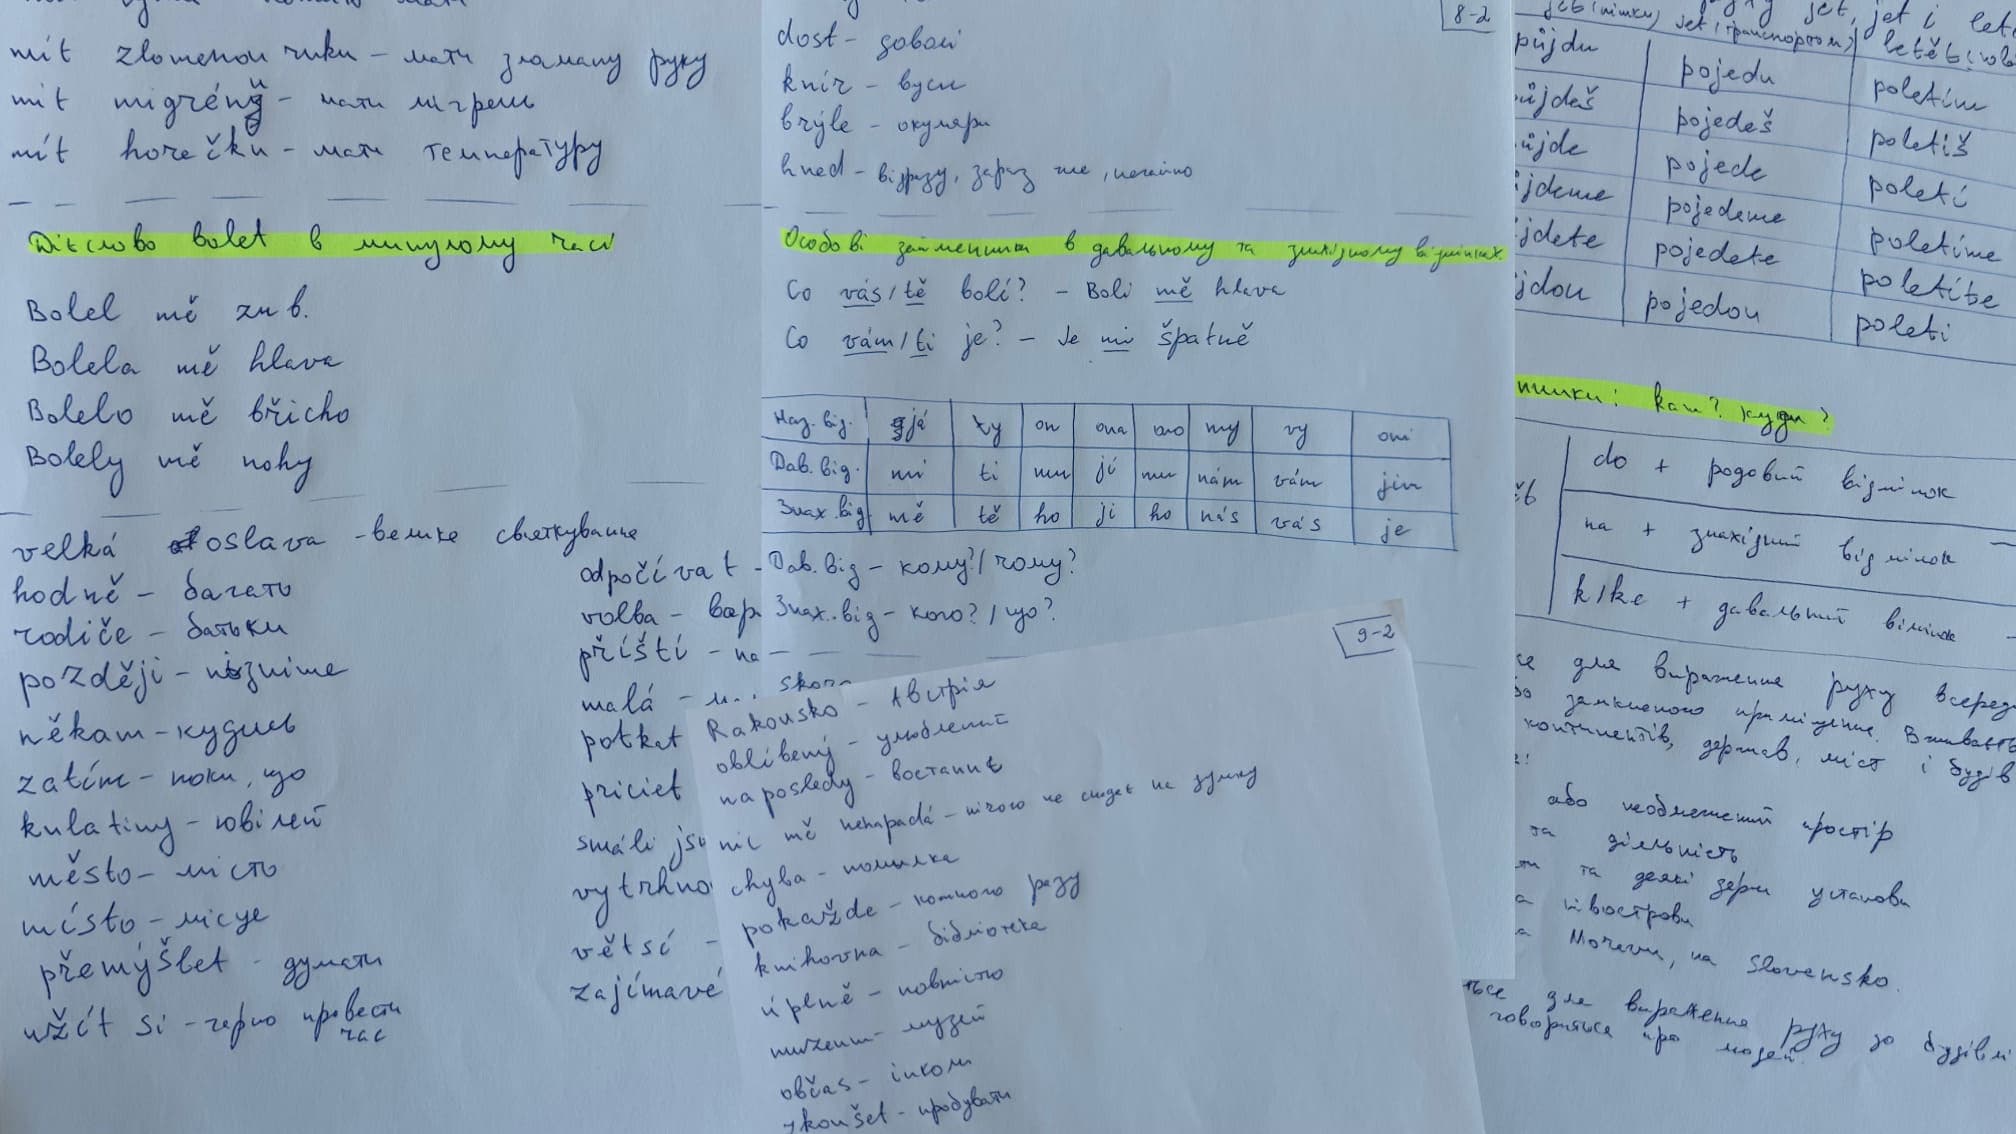 mít zlomenou ruku – мати зламану руку
mít migrénu – мати мігрень
mít horečku – мати температуру
Дієслово bolet в минулому часі
Bolel mě zub.
Bolela mě hlava
Bolelo mě břicho
Bolely mě nohy
velká oslava – велике святкування
hodně – багато
rodiče – батьки
později – пізніше
někam – кудись
zatím – поки, що
kulatiny – ювілей
město – місто
místo – місце
přemýšlet – думати
užít si – гарно провести
час
odpočívat –
volba –
příští – на
malá –
potkat
priciet
smáli jsi
vytrhno
větsí –
zajímavé
8-2
dost – доволі
knír – вуси
brýle – окуляри
hned – відразу, зараз же, негайно
Особові займенники в давальному та знахідному відмінках.
Co vás/tě bolí? – Bolí mě hlava
Co vám/ti je? – Je mi špatně
Наз. від. já ty on ona ono my vy oni
Дав. від. mi ti mu jí mu nám vám jim
Знах. від. mě tě ho ji ho nás vás je
Дав. від – кому?/чому?
Знах. від – кого?/що?
skoro
9-2
Rakousko – Австрія
oblíbený – улюблений
naposledy – востаннє
nic mě nenapadá – нічого не спадає на думку
chyba – помилка
pokaždé – кожного разу
knihovna – бібліотека
úplně – повністю
muzeum – музей
občas – інколи
zkoušet – пробувати
jet, jet i let
jet (транспортом)
půjdu pojedu poletím
ůjdeš pojedeš poletíš
ůjde pojede poletí
ůjdeme pojedeme poletíme
jdete pojedete poletíte
jdou pojedou poletí
kam? куди?
do + родовий відмінок
na + знахідний відмінок
k/ke + давальний відмінок
се для вираження руху всеред
замкненого приміщення. Вживаєть
континентів, держав, міст і будів
або необмежений простір
та діяльність
та деякі держ установи
півострови
Moravu, на Slovensko.
ться для вираження руху до будівлі
говориться про людей.